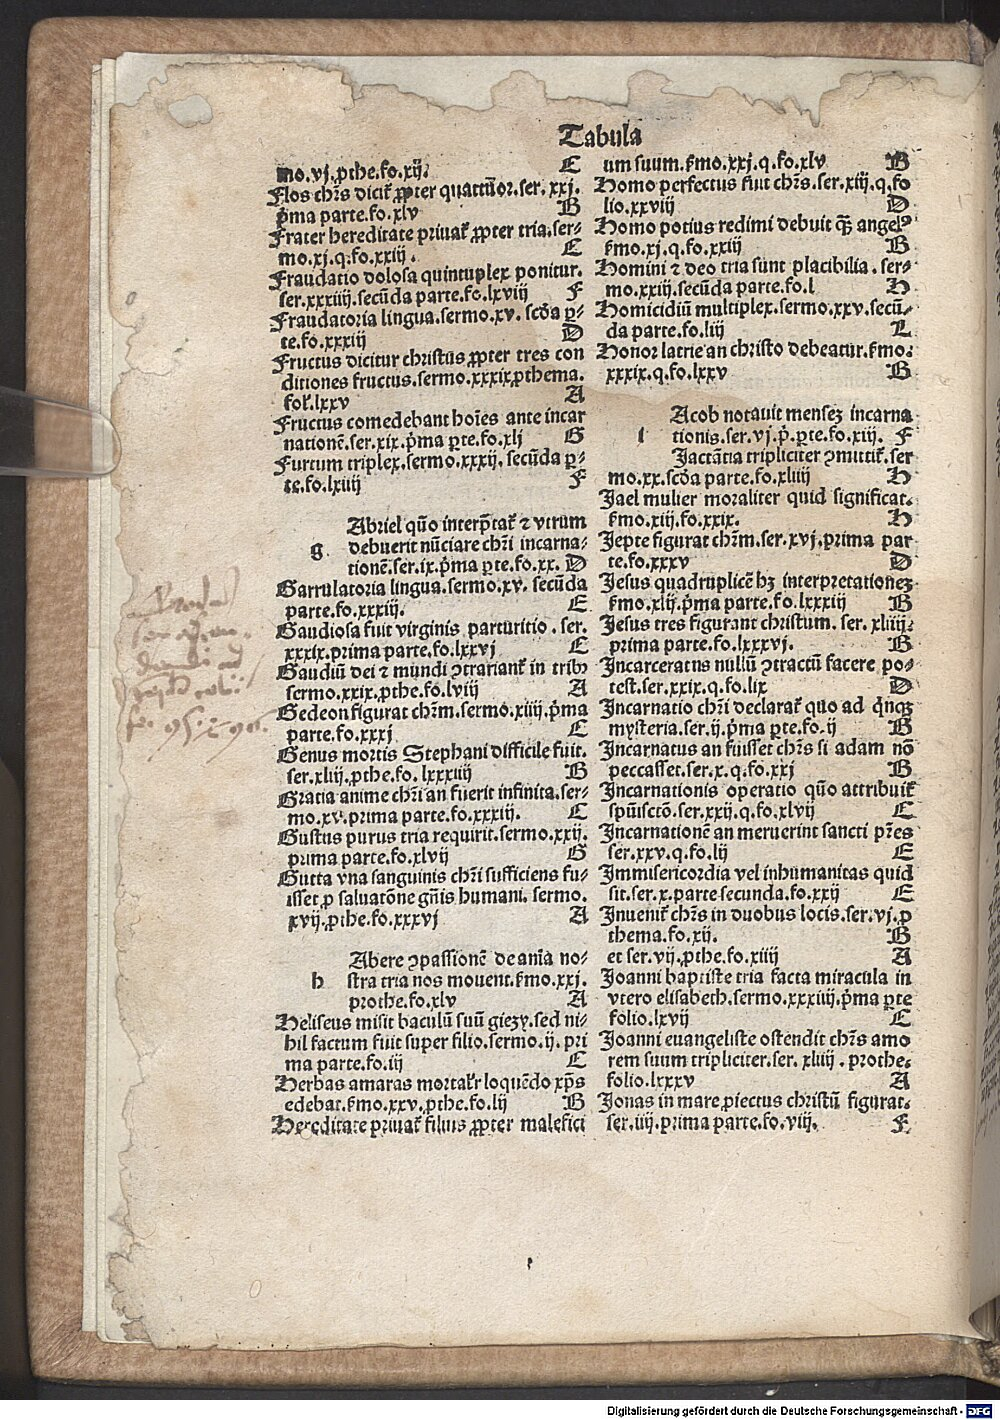 Tabula
mo.vj.ꝓthe.fo.xij. E
Flos chr̄s dicit᷑ ꝓpter quattuor.ser.xxj.
p̄ma parte.fo.xlv B
Frater hereditate priuat᷑ ꝓpter tria.ser⸗
mo.xj.q.fo.xxiij. E
Fraudatio dolosa quintuplex ponitur.
ser.xxxiiij.secūda parte.fo.lxviij F
Fraudatoria lingua.sermo.xv. scd̄a ꝑ⸗
te.fo.xxxiij D
Fructus dicitur christus ꝓpter tres con
ditiones fructus.sermo.xxxix.ꝓthema.
fol.lxxv A
Fructus comedebant hoīes ante incar
nationē.ser.xix.p̄ma ꝑte.fo.xlj G
Furtum triplex.sermo.xxxij. secūda ꝑ⸗
te.fo.lxiiij F
Abriel quō interp̄tat᷑ ⁊ vtrum
g debuerit nūciare chr̄i incarna⸗
tionē.ser.ix.p̄ma ꝑte.fo.xx. D
Garrulatoria lingua.sermo.xv. secūda
parte.fo.xxxiij. E
Gaudiosa fuit virginis parturitio.ser.
xxxix.prima parte.fo.lxxvj E
Gaudiū dei ⁊ mundi ꝯtrariant᷑ in tribꝰ
sermo.xxix.ꝓthe.fo.lviij A
Gedeon figurat chr̄m.sermo.xiiij.p̄ma
parte.fo.xxxj E
Genus mortis Stephani difficile fuit.
ser.xliij.ꝓthe.fo.lxxxiiij B
Gratia anime chr̄i an fuerit infinita.ser⸗
mo.xv.prima parte.fo.xxxiij. E
Gustus purus tria requirit.sermo.xxij.
prima parte.fo.xlvij G
Gutta vna sanguinis chr̄i sufficiens fu⸗
isset ꝓ saluatōne gn̄is humani. sermo.
xvij.ꝓthe.fo.xxxvj A
Abere ꝯpassionē de anīa no⸗
h stra tria nos mouent.ẜmo.xxj.
prothe.fo.xlv A
Heliseus misit baculū suū giezy.sed ni⸗
hil factum fuit super filio.sermo.ij. pri
ma parte.fo.iij E
Herbas amaras mortalr̄ loquēdo xp̄s
edebat.ẜmo.xxv.ꝓthe.fo.lij B
Hereditate priuat᷑ filius ꝓpter malefici
um suum.ẜmo.xxj.q.fo.xlv B
Homo perfectus fuit chr̄s.ser.xiij.q.fo
lio.xxviij D
Homo potius redimi debuit q̄ꝫ angelꝰ
ẜmo.xj.q.fo.xxiij B
Homini ⁊ deo tria sunt placibilia.ser⸗
mo.xxiij.secūda parte.fo.l H
Homicidiū multiplex.sermo.xxv.secū⸗
da parte.fo.liij L
Honor latrie an christo debeatur.ẜmo.
xxxix.q.fo.lxxv B
Acob notauit menseꝫ incarna
i tionis.ser.vj.p̄.ꝑte.fo.xiij. F
Jactātia tripliciter ꝯmittit᷑.ser
mo.xx.scd̄a parte.fo.xliiij H
Jael mulier moraliter quid significat.
ẜmo.xiij.fo.xxix. H
Jepte figurat chr̄m.ser.xvj.prima par
te.fo.xxxv D
Jesus quadruplicē hꝫ interpretationeꝫ
ẜmo.xlij.p̄ma parte.fo.lxxxiij B
Jesus tres figurant christum. ser. xliiij.
prima parte.fo.lxxxvj. B
Incarceratus nullū ꝯtractū facere po⸗
test.ser.xxix.q.fo.lix D
Incarnatio chr̄i declarat᷑ quo ad q̄nqꝫ
mysteria.ser.ij.p̄ma ꝑte.fo.ij B
Incarnatus an fuisset chr̄s si adam nō
peccasset.ser.x.q.fo.xxj B
Incarnationis operatio quō attribuit᷑
spūisctō.ser.xxij.q.fo.xlvij E
Incarnationē an meruerint sancti pr̄es
ser.xxv.q.fo.lij E
Immisericordia vel inhumanitas quid
sit.ser.x.parte secunda.fo.xxij E
Inuenit᷑ chr̄s in duobus locis.ser.vj.ꝓ
thema.fo.xij. B
et ser.vij.ꝓthe.fo.xiiij A
Joanni baptiste tria facta miracula in
vtero elisabeth.sermo.xxxiiij.p̄ma ꝑte
folio.lxvij E
Joanni euangeliste ostendit chr̄s amo
rem suum tripliciter.ser. xliij . prothe.
folio.lxxxv A
Jonas in mare ꝓiectus christū figurat.
ser.iiij.prima parte.fo.viij. F
Digitalisierung gefördert durch die Deutsche Forschungsgemeinschaft - DFG